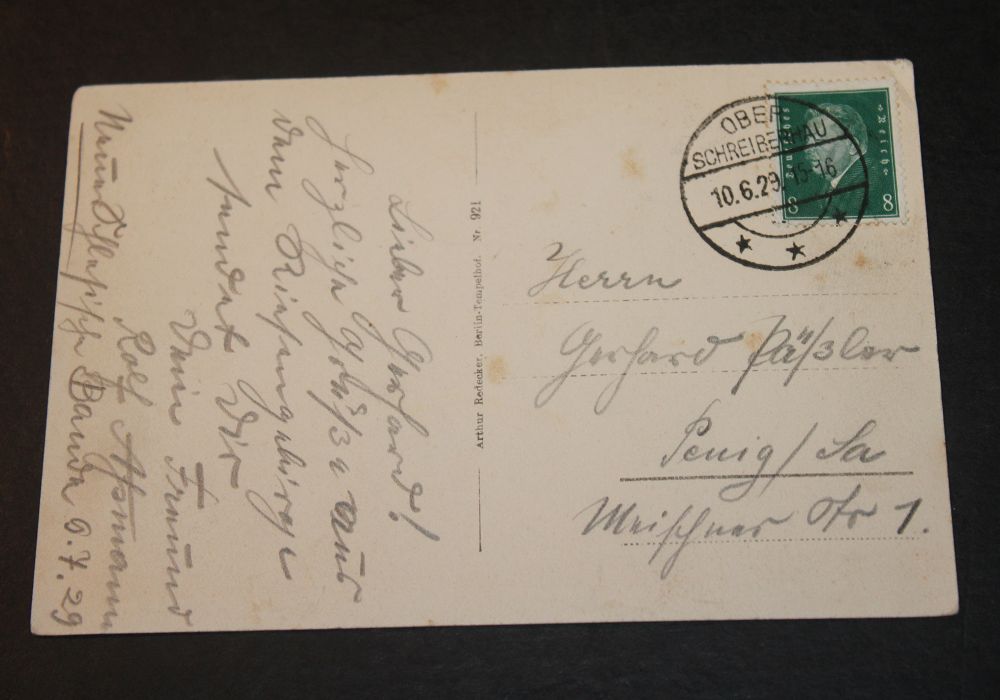 Lieber Gerhard!
Herzliche Grüße aus
dem Riesengebirge
sendet Dir
Dein Freund
Rolf Aßmann
Neue Schlesische Baude 9.7.29
Arthur Redecker, Berlin-Tempelhof. Nr. 921
OBER
SCHREIBERHAU
10.6.29. 15-16
Deutsches Reich
8 8
Herrn
Gerhard Päßler
Penig / Sa
Meischner Str 1.